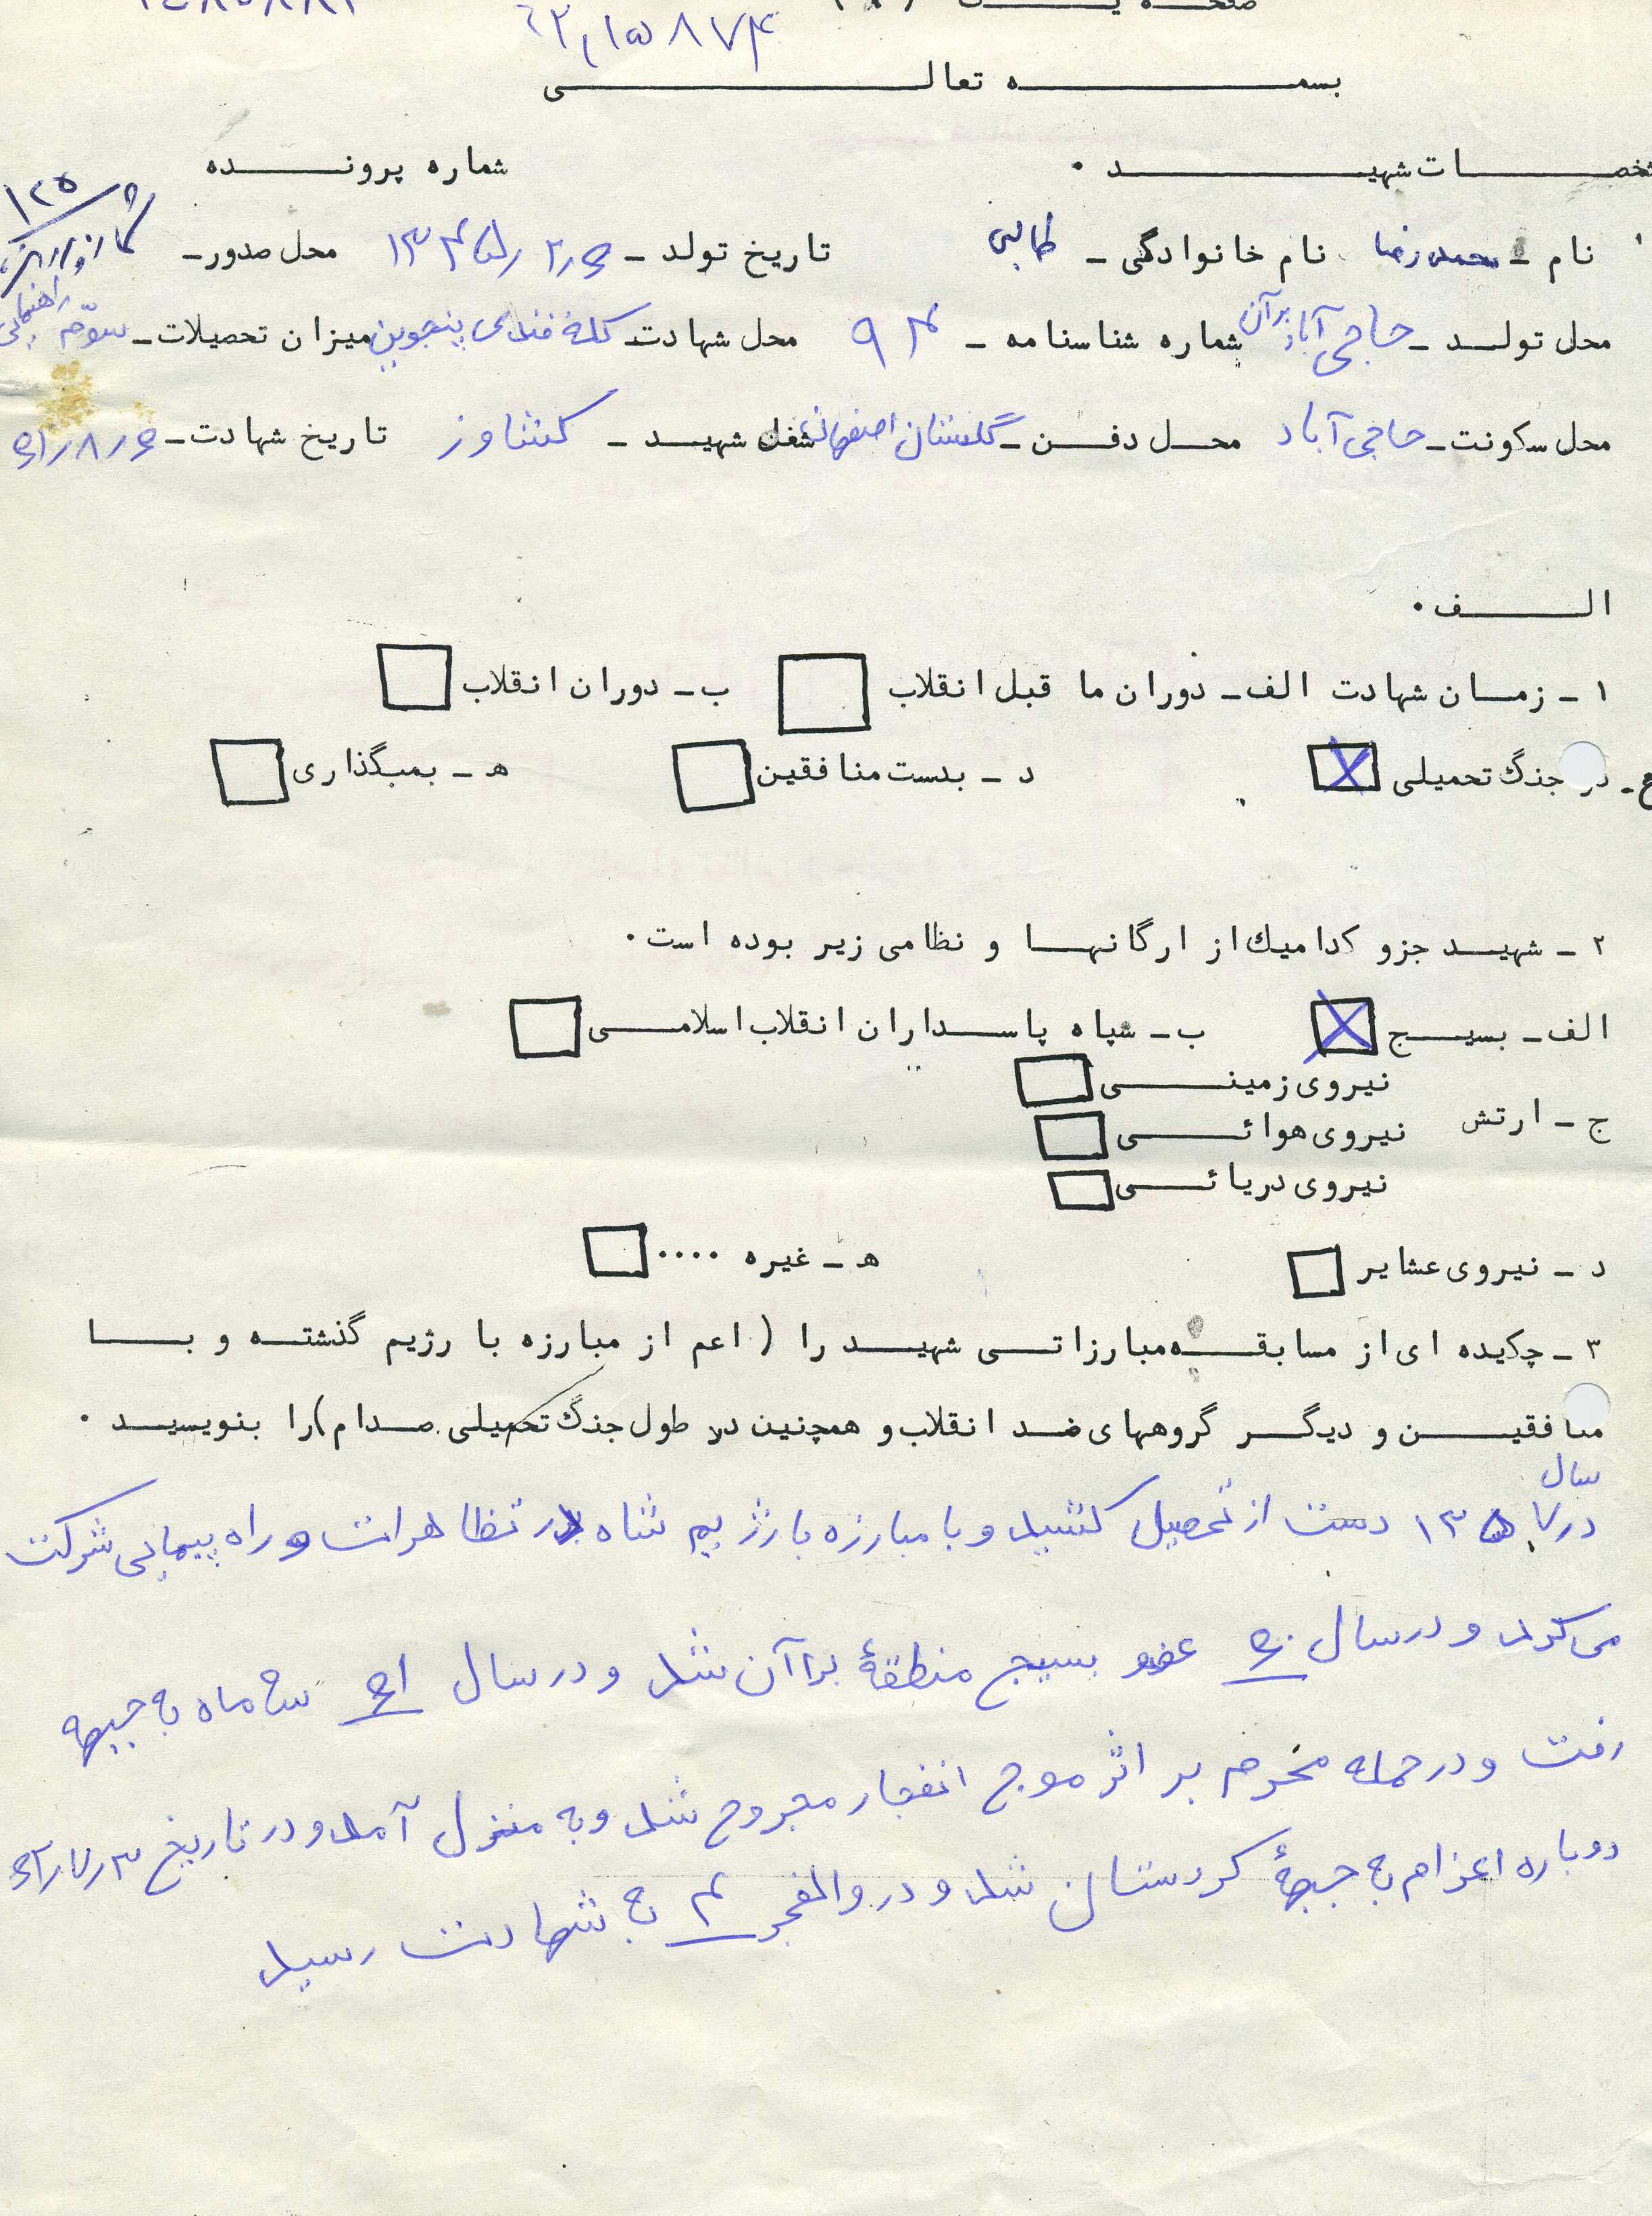 ۶۲٫۱۵۸۷۴
بسمه تعالی
مشخصات شهید . شماره پرونده
نام - محمدرضا نام خانوادگی - طالبی تاریخ تولد - ۱۳۴۵٫۲٫۶ محل صدور -
محل تولد - حاجی آباد برآن شماره شناسنامه - ۹۴ محل شهادت - کله قندی پنجوین میزان تحصیلات - سوّم راهنمایی
محل سکونت - حاجی آباد محل دفن - گلستان اصفهان شغل شهید - کشاورز تاریخ شهادت -
الف .
۱ - زمان شهادت الف - دوران ما قبل انقلاب ب - دوران انقلاب
ج - در جنگ تحمیلی X د - بدست منافقین ه - بمبگذاری
۲ - شهید جزو کدامیک از ارگانها و نظامی زیر بوده است .
الف - بسیج X ب - سپاه پاسداران انقلاب اسلامی
نیروی زمینی
ج - ارتش نیروی هوائی
نیروی دریائی
د - نیروی عشایر ه - غیره ....
۳ - چکیده ای از مسابقه مبارزاتی شهید را ( اعم از مبارزه با رژیم گذشته و با
منافقین و دیگر گروههای ضد انقلاب و همچنین در طول جنگ تحمیلی صدام ) را بنویسید .
در سال ۱۳۵۷ دست از تحصیل کشید و با مبارزه با رژیم شاه در تظاهرات و راه پیمایی شرکت
می کرد و در سال ۶۰ عضو بسیج منطقهٔ براآن شد و در سال ۶۱ سه ماه به جبهه
رفت و در حمله محرم بر اثر موج انفجار مجروح شد و به منزل آمد و در تاریخ ۶۲٫۷٫۳
دوباره اعزام به جبههٔ کردستان شد و در والفجر ۴ به شهادت رسید